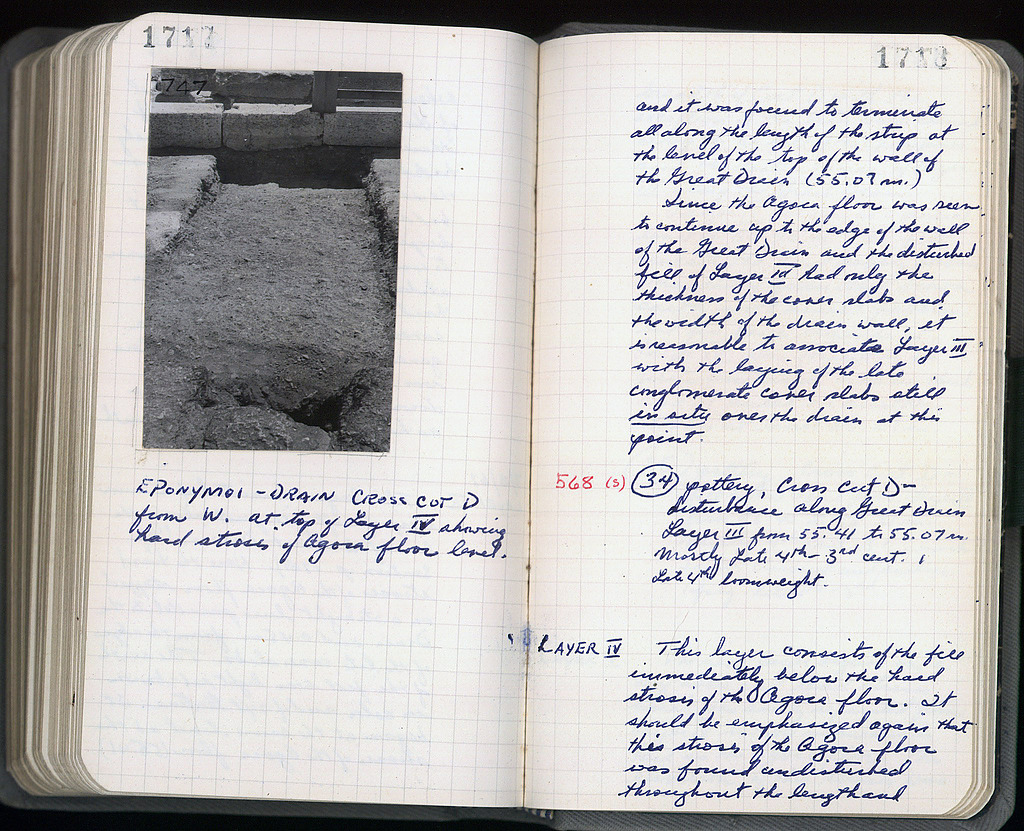 1717
747
EPONYMOI - DRAIN CROSS CUT D
from W. at top of Layer IV showing
hard stroses of Agora floor level.
1718
and it was found to terminate
all along the length of the strip at
the level of the top of the wall of
the Great Drain (55.07 m.)
Since the Agora floor was seen
to continue up to the edge of the wall
of the Great Drain and the disturbed
fill of Layer III had only the
thickness of the cover slabs and
the width of the drain wall, it
is reasonable to associate Layer III
with the laying of the late
conglomerate cover slabs still
in situ over the drain at this
point.
568 (s) 34 pottery, Cross Cut D-
disturbance along Great Drain
Layer III from 55.41 to 55.07 m.
Mostly Late 4th - 3rd cent. 1
Late 4th loomweight.
LAYER IV This layer consists of the fill
immediately below the hard
strosis of the Agora floor. It
should be emphasized again that
this strosis of the Agora floor
was found undisturbed
throughout the length and